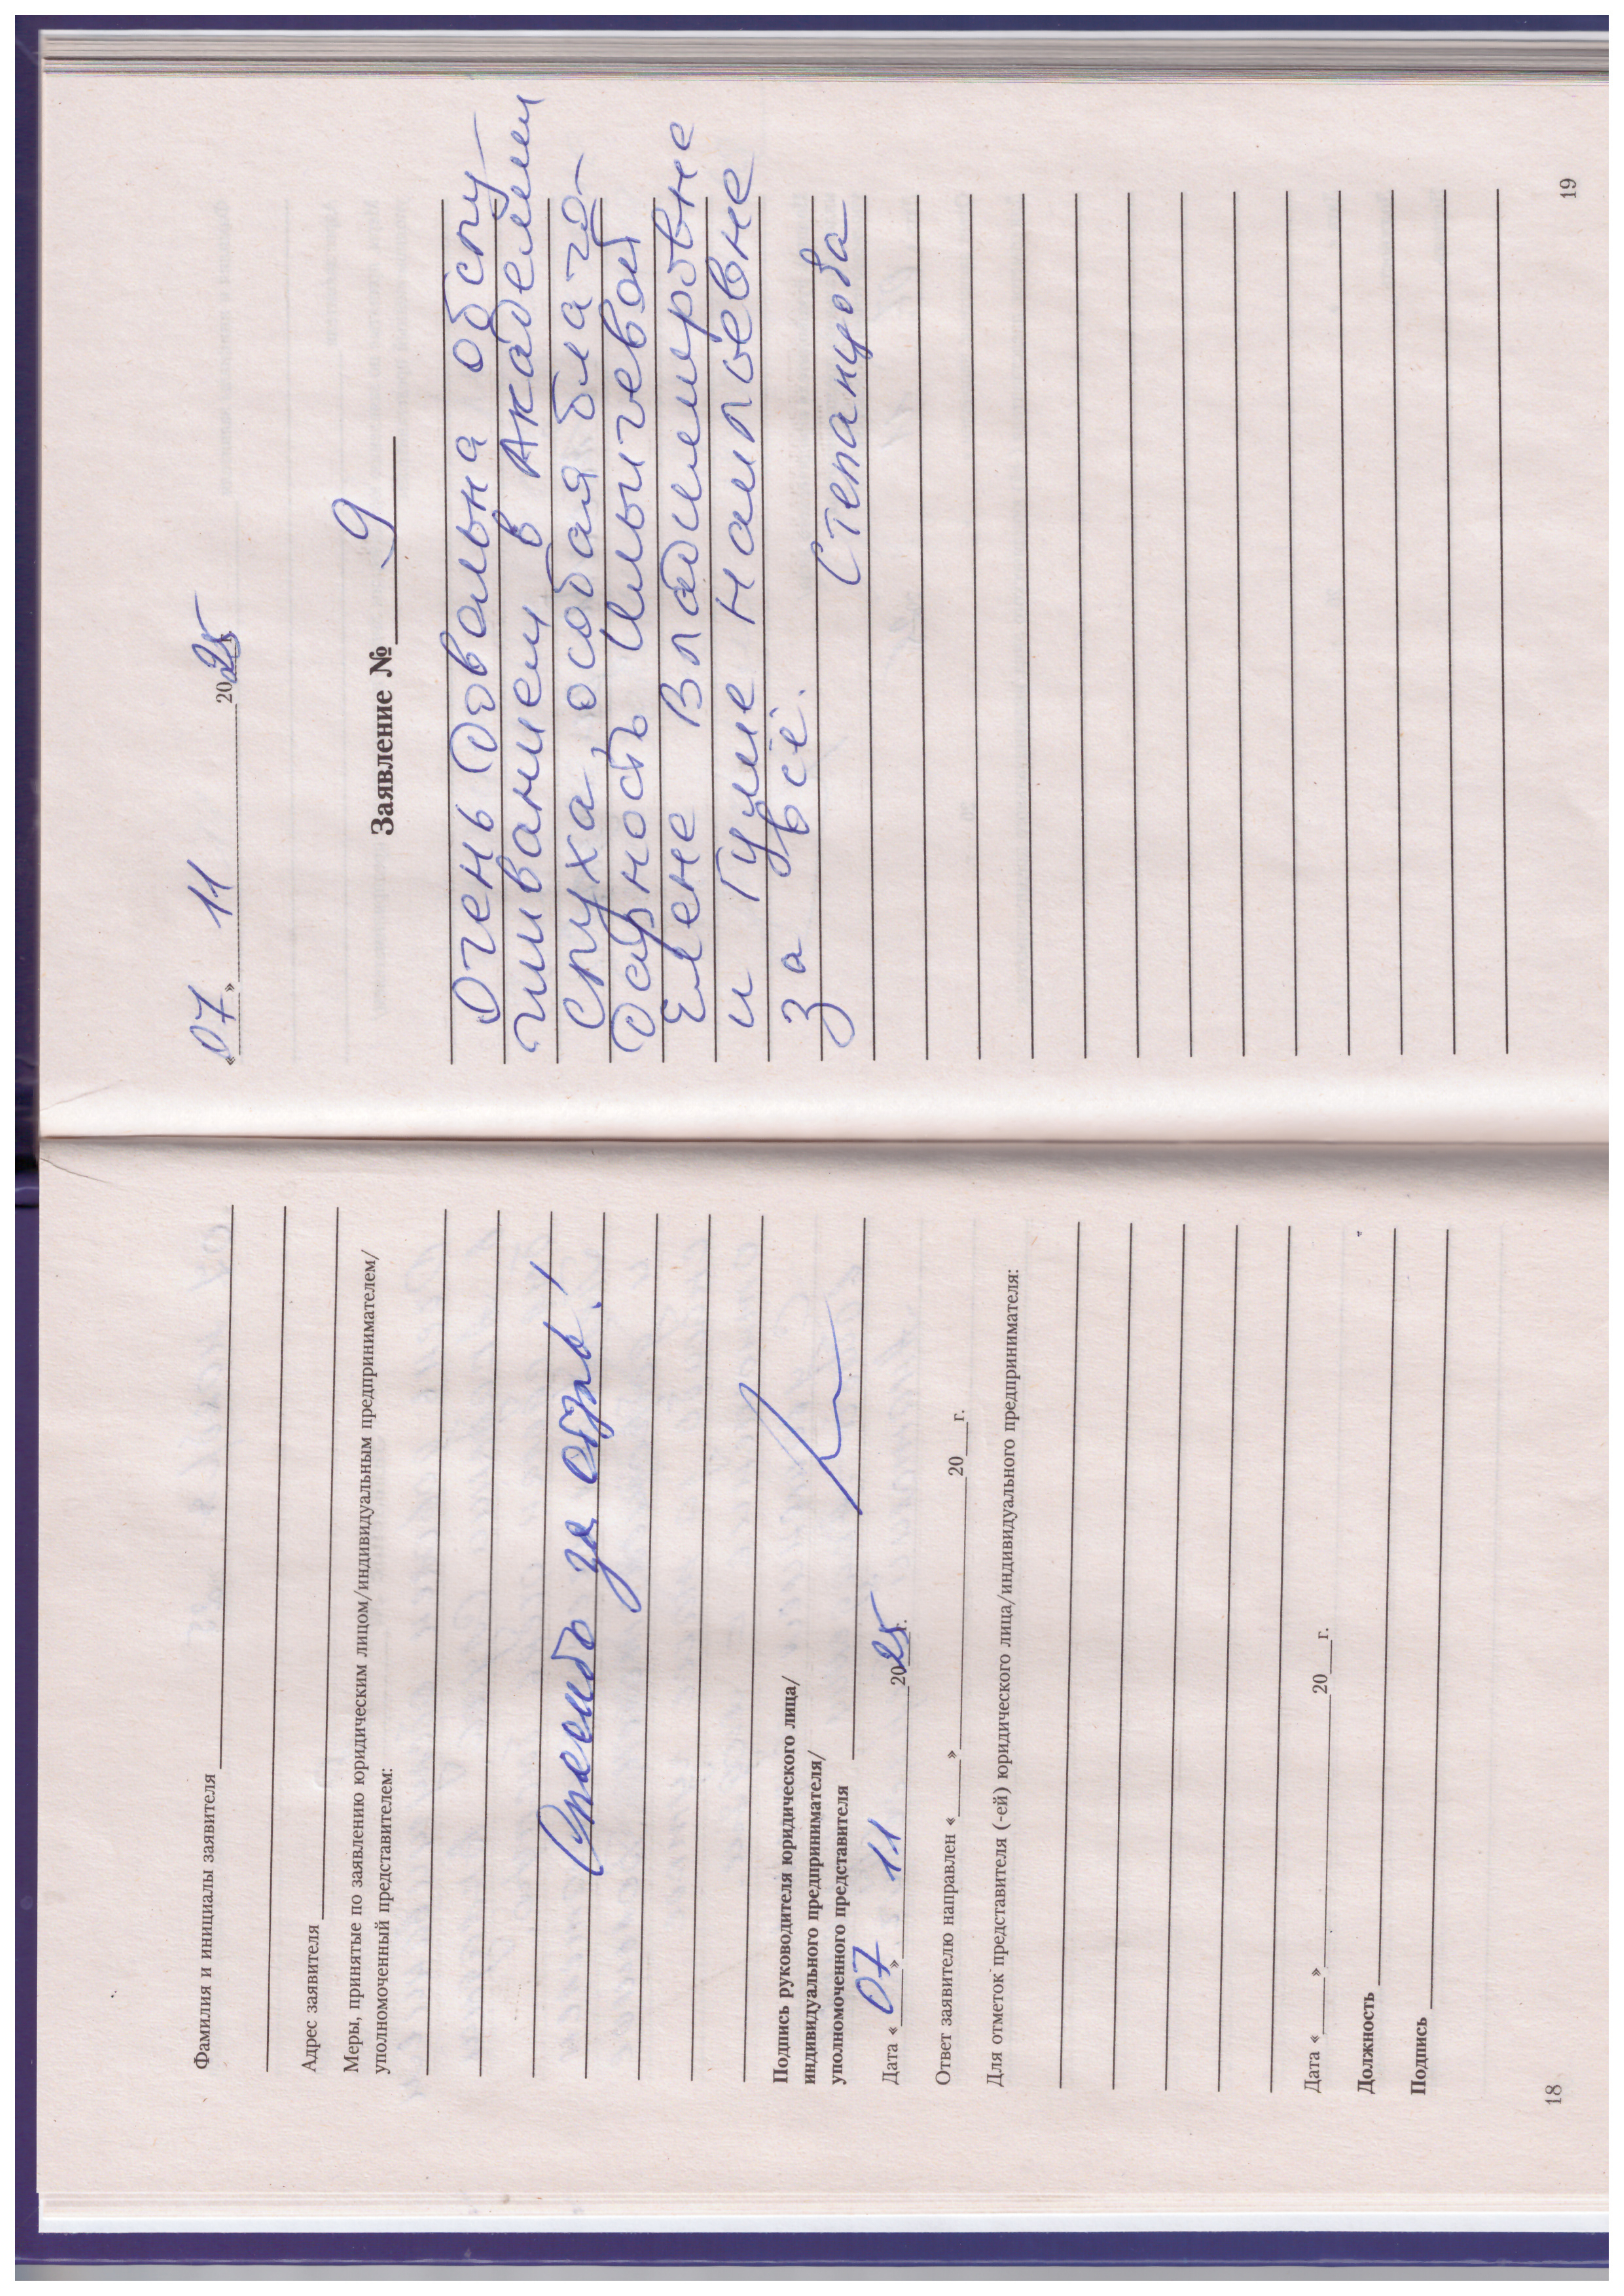 Фамилия и инициалы заявителя
Адрес заявителя
Меры, принятые по заявлению юридическим лицом/индивидуальным предпринимателем/
уполномоченный представителем:
Спасибо за отзыв!
Подпись руководителя юридического лица/
индивидуального предпринимателя/
уполномоченного представителя
Дата « 07 » 11 2025г.
Ответ заявителю направлен « » 20 г.
Для отметок представителя (-ей) юридического лица/индивидуального предпринимателя:
Дата « » 20 г.
Должность
Подпись
18
« 07 » 11 2025г.
Заявление № 9
Очень довольна обслу-
живанием в Академии
слуха, особая благо-
дарность Ильичевой
Елене Владимировне
и Гуле Наильевне
за всё.
Степанцова
19